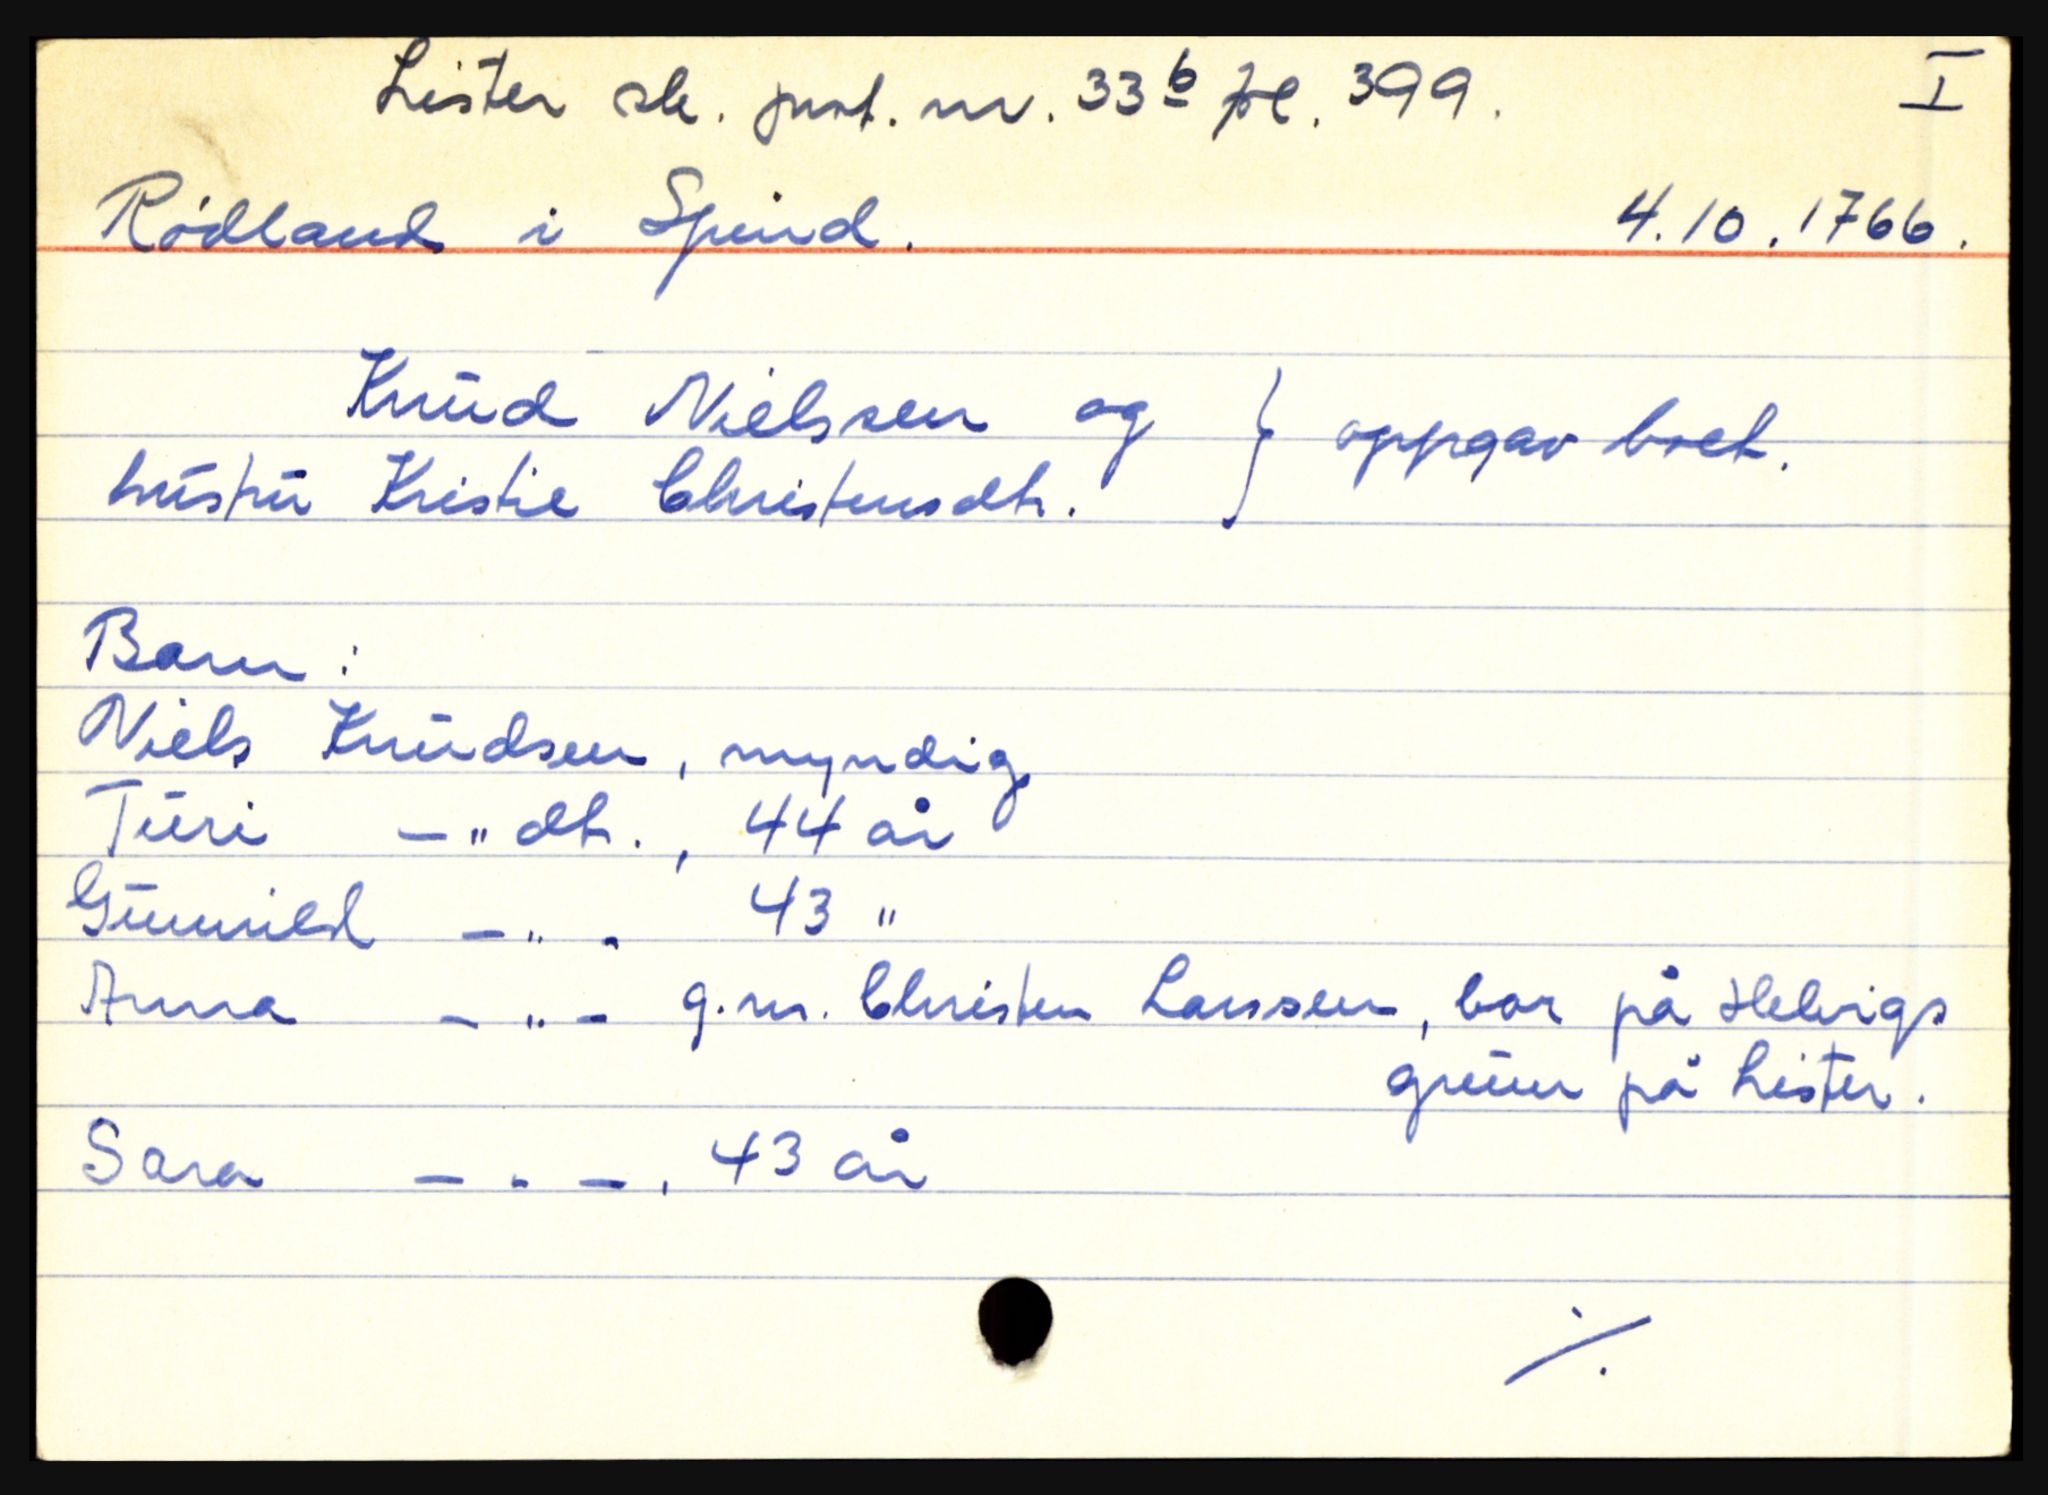 Lister sk. prot. nr. 33b fol. 399. I
Rødland i Spind. 4.10.1766.
Knud Nielssen og } oppgav boet.
hustru Kristie Christensdtr.
Barn:
Niels Knudsen, myndig
Turi —"dtr., 44 år
Gunnild —"- 43 "
Anna —"— g.m. Christen Larssen, bor på Helvigs
grunn på Lister.
Sara —"—, 43 år
./.